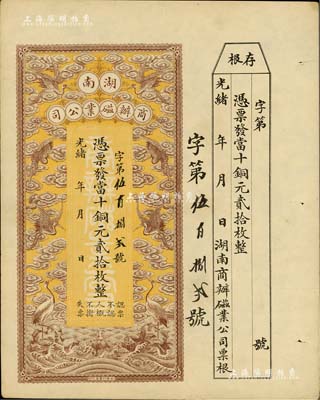 湖南
商辦磁業公司
字第伍百捌貳號
憑票發當十銅元貳拾枚整
光緒 年 月 日
認票不認人
失票概不擔
字第伍百捌貳號
存根
字第 號
憑票發當十銅元貳拾枚整
光緒 年 月 日湖南商辦磁業公司票根
上海泓盛拍賣